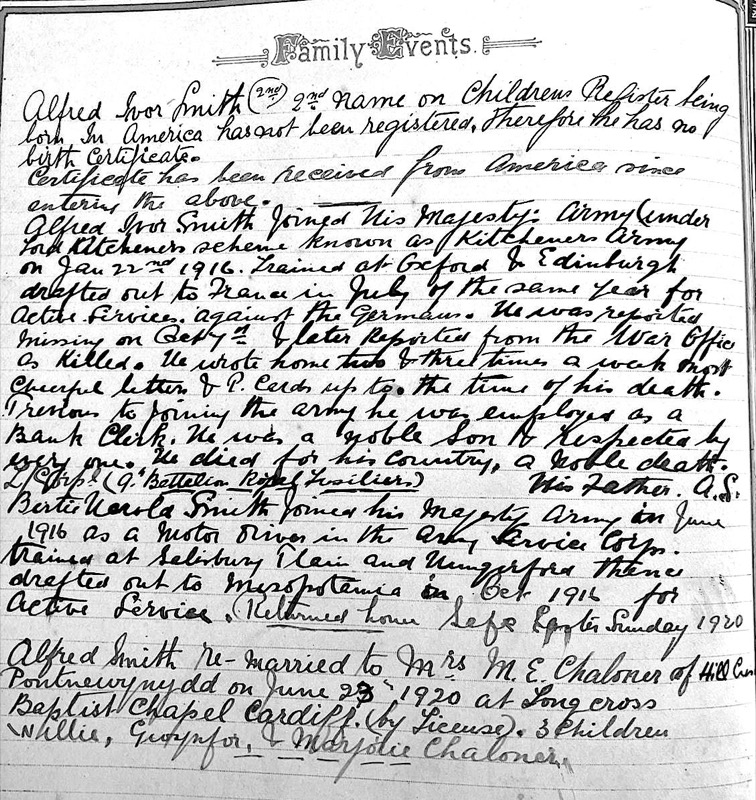 Family Events.
Alfred Ivor Smith (2nd) 2nd name on Childrens Register being
born In America has not been registered, therefore he has no
birth Certificate.
Certificate has been received from America since
entering the above.
Alfred Ivor Smith Joined his Majesty's Army (under
Lord Kitcheners scheme known as Kitcheners Army
on Jan 22nd 1916. Trained at Oxford & Edinburgh
drafted out to France in July of the same year for
Active Services. against the Germans. He was reported
missing on Oct 7th & later Reported from the War Office
as Killed. He wrote home two & three times a week most
Cheerful letters & P. Cards up to. the time of his death.
Previous to Joining the army he was employed as a
Bank Clerk. He was a noble Son & Respected by
every one. He died for his Country, a Noble death.
L/Corpl (9th Battelion Royal Fusiliers) His Father. A.S.
Bertie Harold Smith Joined his Majesty Army in June
1916 as a Motor Driver in the Army Service Corps.
trained at Salisbury Plain and Hungerford thence
drafted out to Mesopotamia in Oct 1916 for
Active Service. (Returned home Safe Easter Sunday 1920
Alfred Smith Re-married to Mrs M. E. Chaloner of Hill Cres
Pontnewynydd on June 23rd 1920 at Longcross
Baptist Chapel Cardiff. (by License). 3 Children
Willie, Gwynfor, & Marjorie Chaloner.